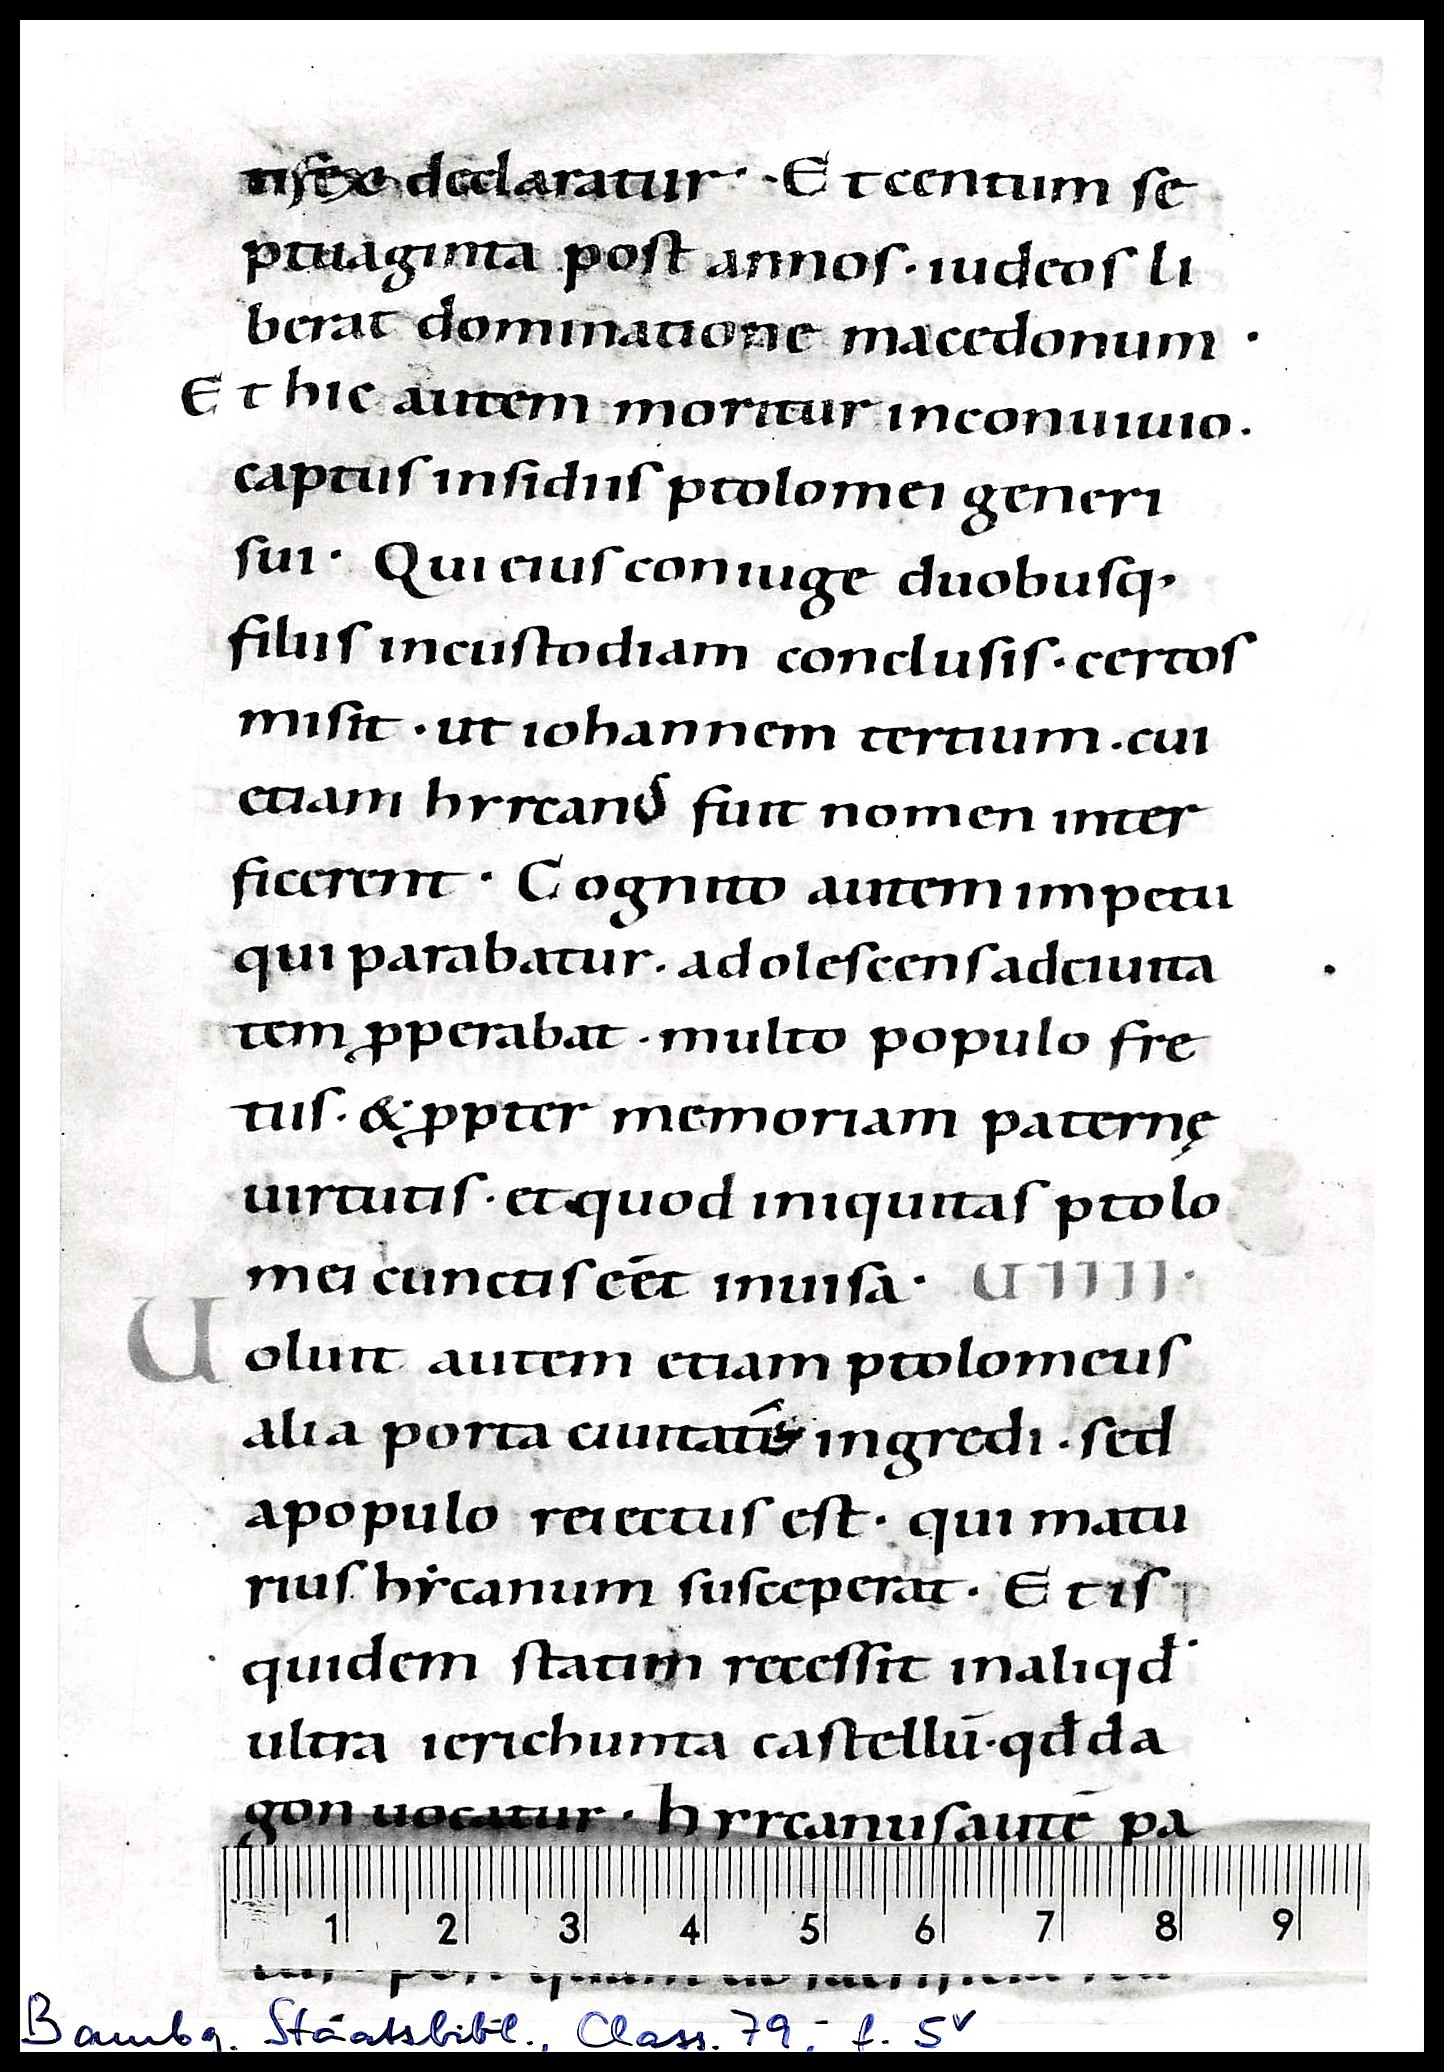 tifex declaratur · Et centum se
ptuaginta post annos · iudeos li
berat dominatione macedonum ·
Et hic autem moritur inconuiuio ·
captus insidiis ptolomei generi
sui · Qui eius coniuge duobusq·
filiis incustodiam conclusis · certos
misit · ut iohannem tertium · cui
etiam hyrcanus fuit nomen inter
ficerent · Cognito autem impetu
qui parabatur · adolescens adciuita
tem ꝓperabat · multo populo fre
tus · & ꝓpter memoriam paternę
uirtutis · et quod iniquitas ptolo
mei cunctis eēt inuisa · UIIII ·
Uoluit autem etiam ptolomeus
alia porta ciuitatis ingredi · sed
apopulo reiectus est · qui matu
rius hyrcanum susceperat · Et is
quidem statim recessit inaliqđ
ultra ierichunta castellū · qđ da
gon uocatur · hyrcanus autē pa
1 2 3 4 5 6 7 8 9
Bambg. Staatsbibl., Class. 79, f. 5v